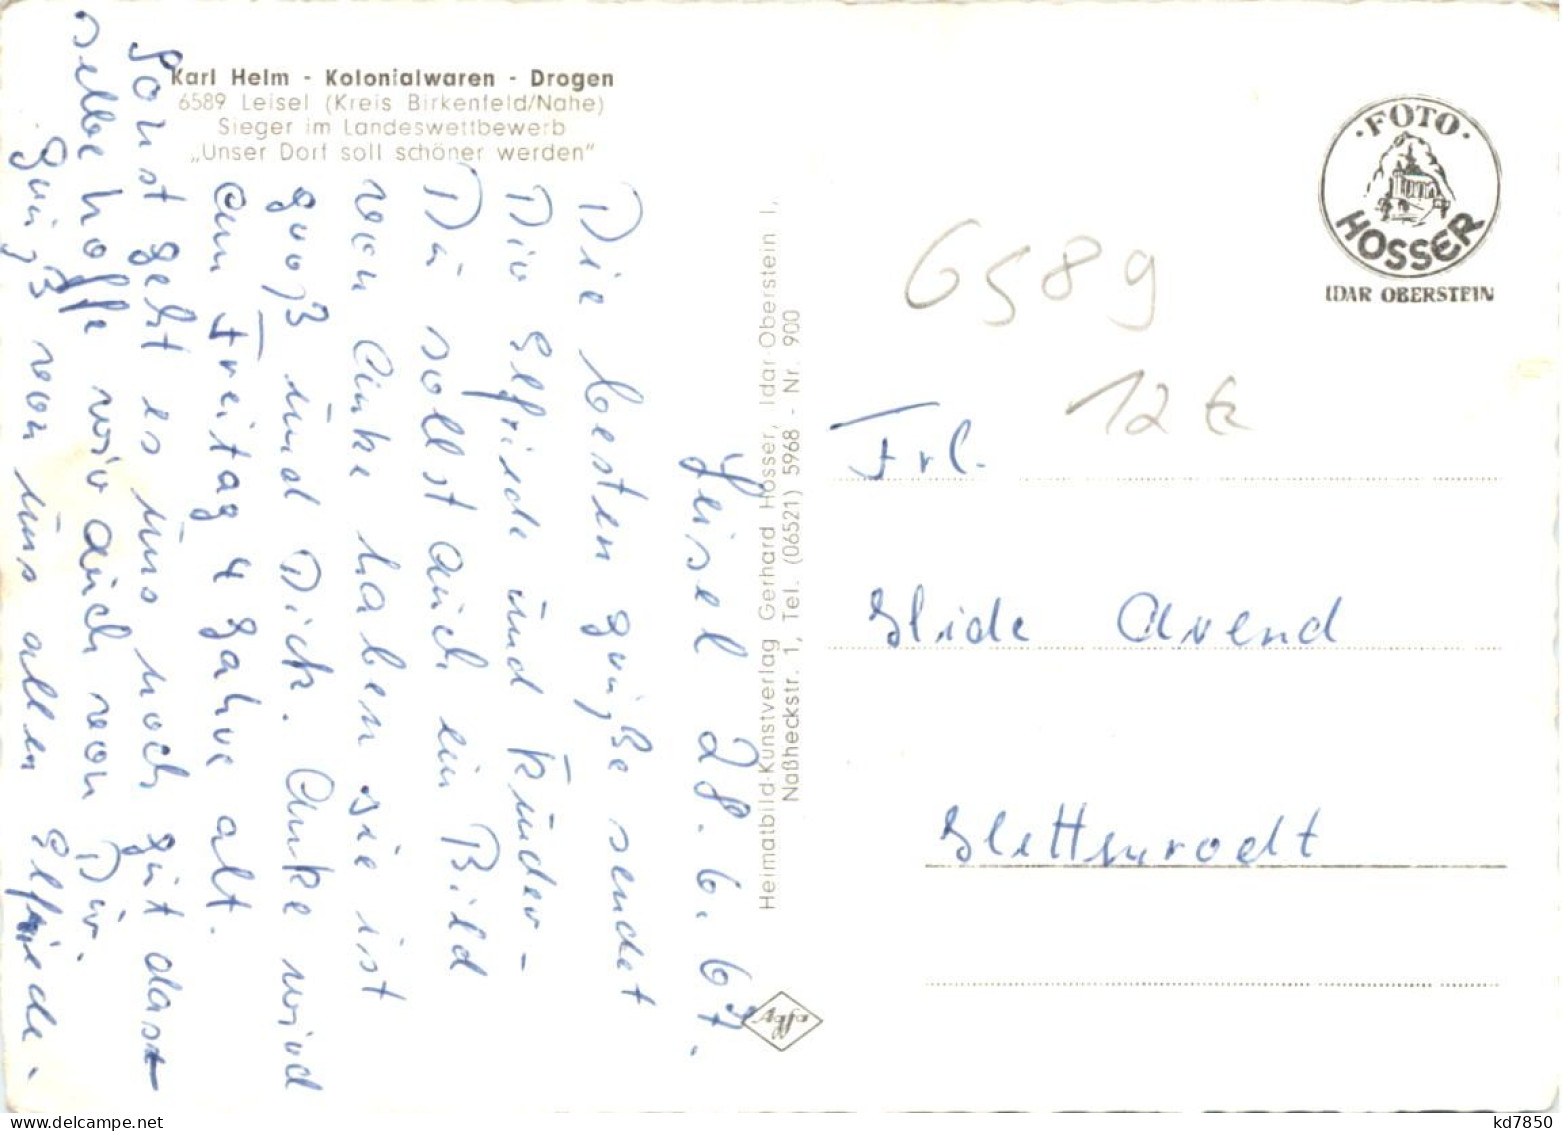 Karl Helm - Kolonialwaren - Drogen
6589 Leisel (Kreis Birkenfeld/Nahe)
Sieger im Landeswettbewerb
„Unser Dorf soll schöner werden"
Leisel 28.6.67.
Die besten grüße sendet
Dir Elfriede und Kinder-
Du sollst auch ein Bild
von Anke haben sie ist
groß und Dick. Anke wird
am Freitag 4 Jahre alt.
Sonst geht es uns noch gut dast
selbe hoffe wir auch von Dir.
gruß von uns allen Elfriede.
Heimatbild-Kunstverlag Gerhard Hosser, Idar-Oberstein I,
Naßheckstr. 1, Tel. (06521) 5968 - Nr. 900
Agfa
·FOTO·
HOSSER
IDAR OBERSTEIN
6589
12
Frl.
Arend
kd7850